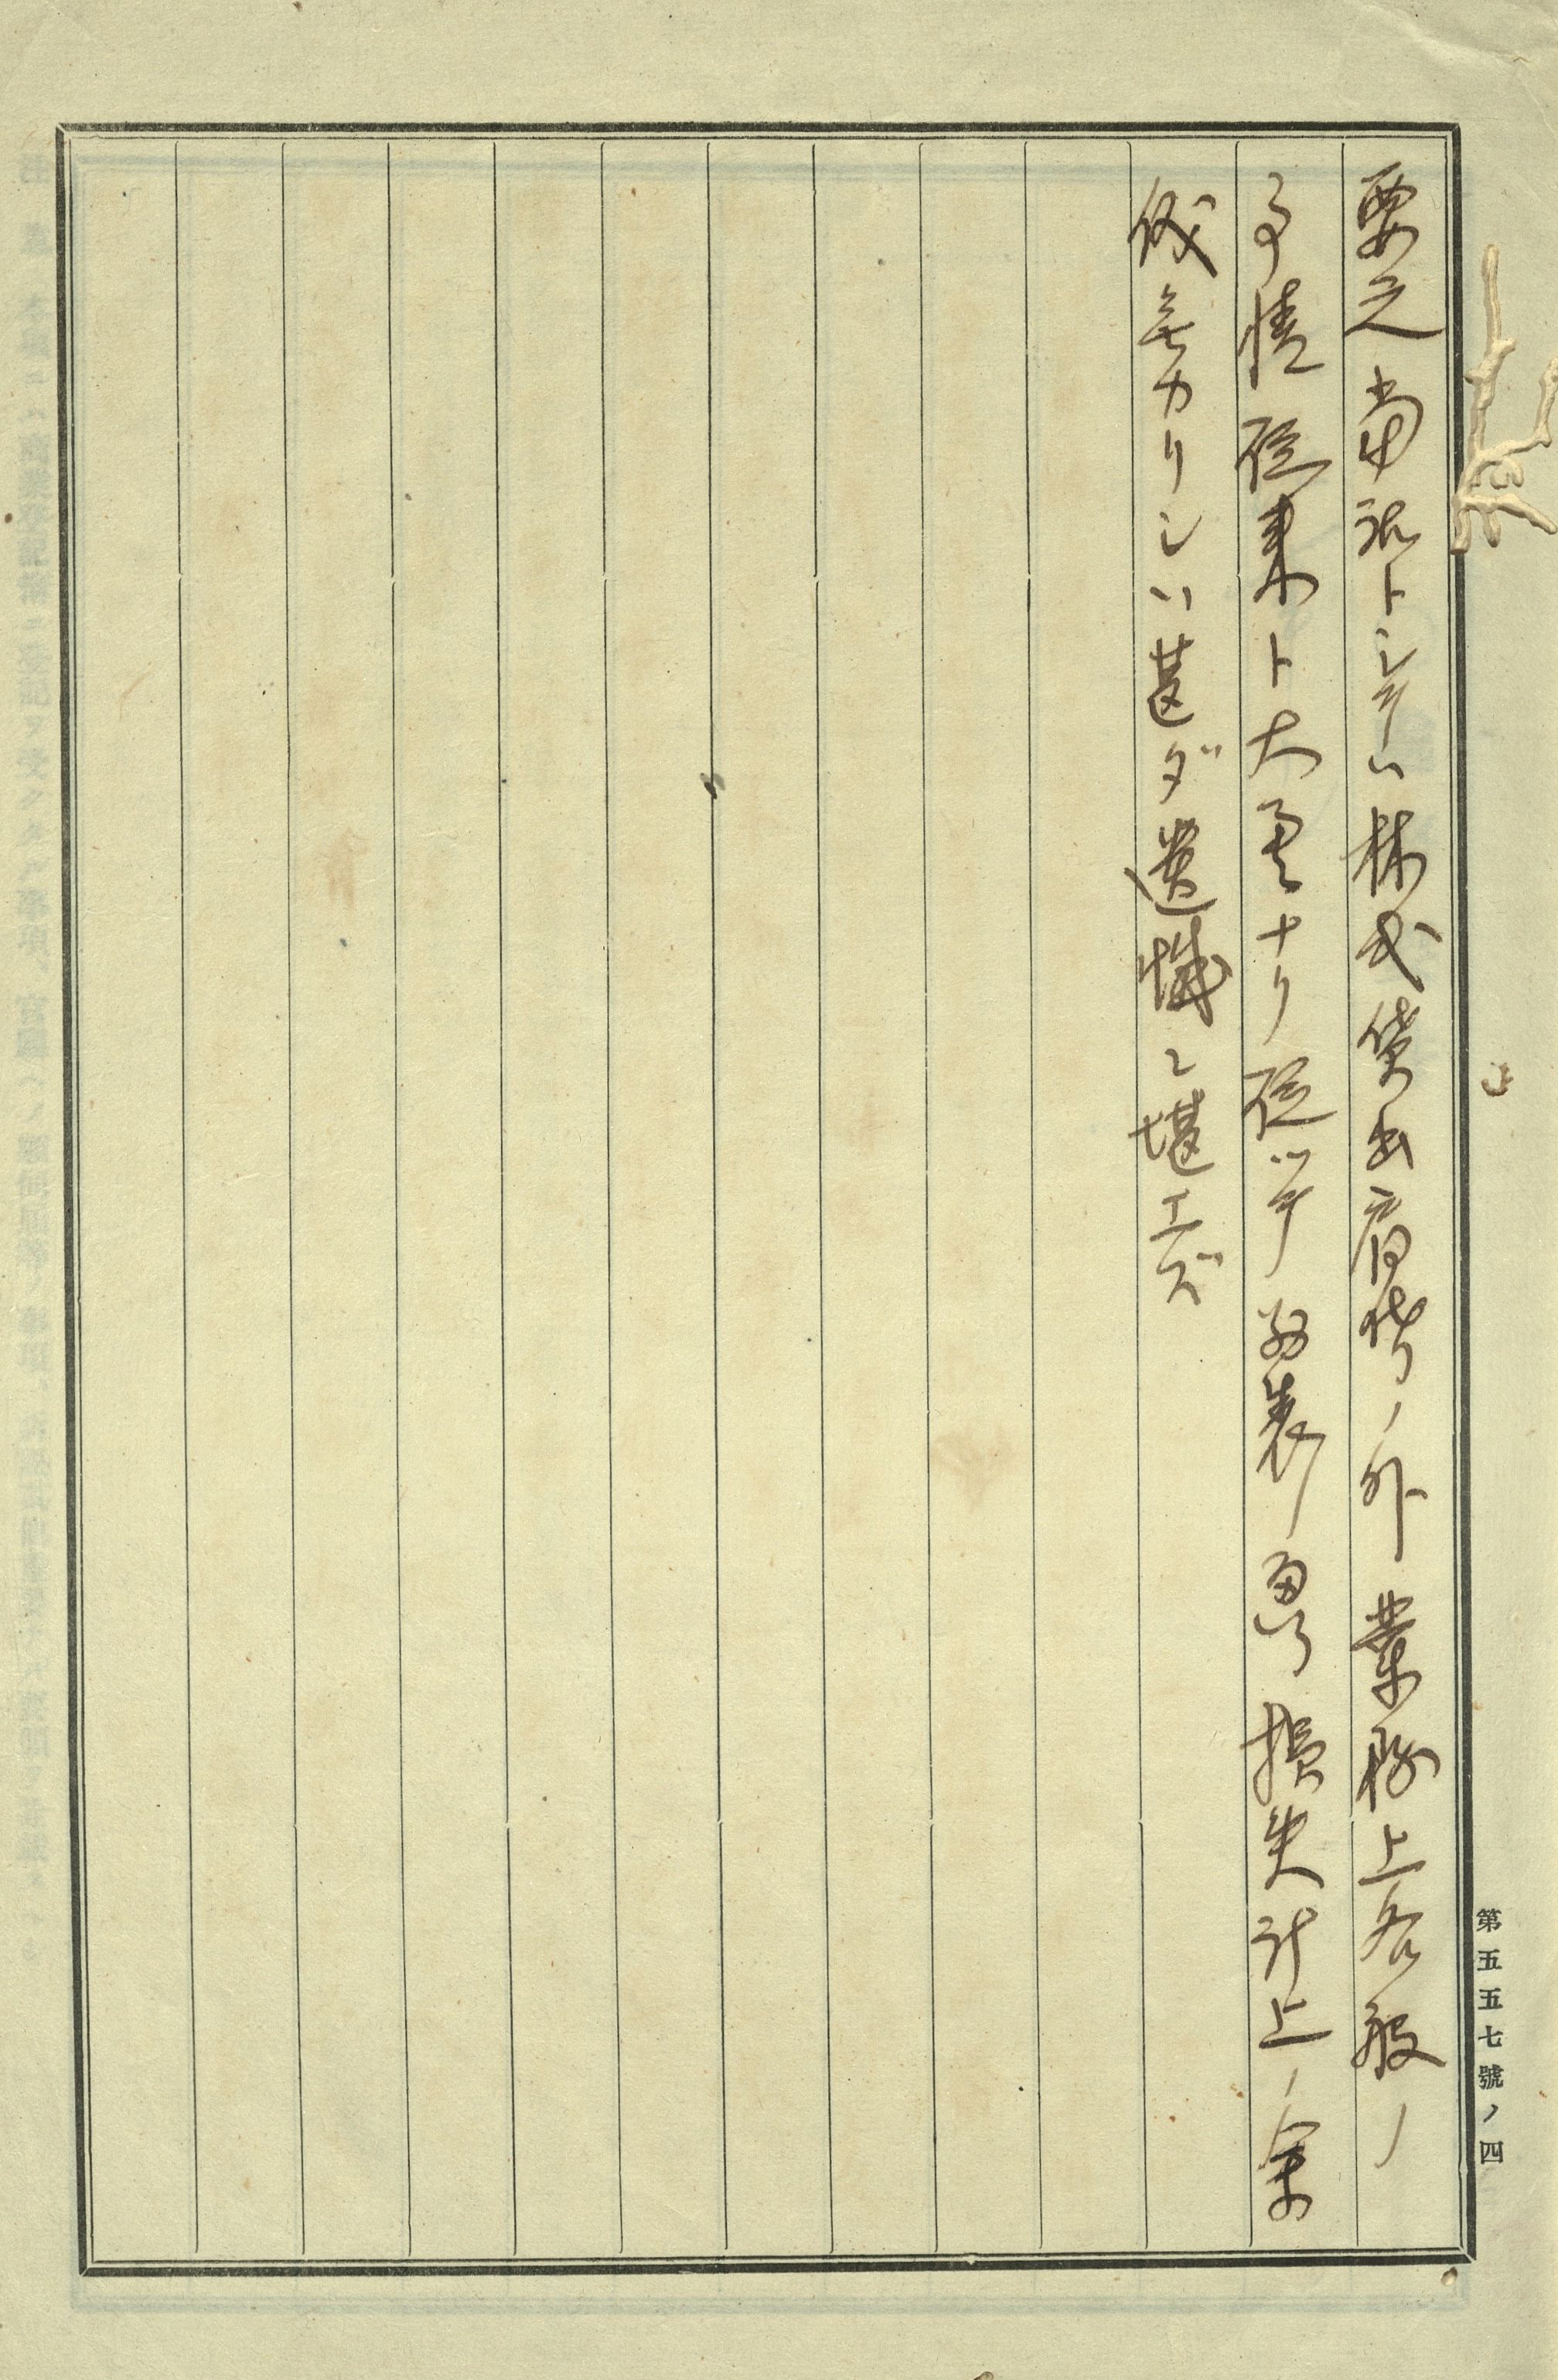 要之當社トシテハ株式貸出肩代リノ外業務上各般ノ
事情従来ト大異ナリ従ツテ表ノ損失計上ノ余
儀無カリシハ甚ダ遺憾ニ堪エズ
第五五七號ノ四